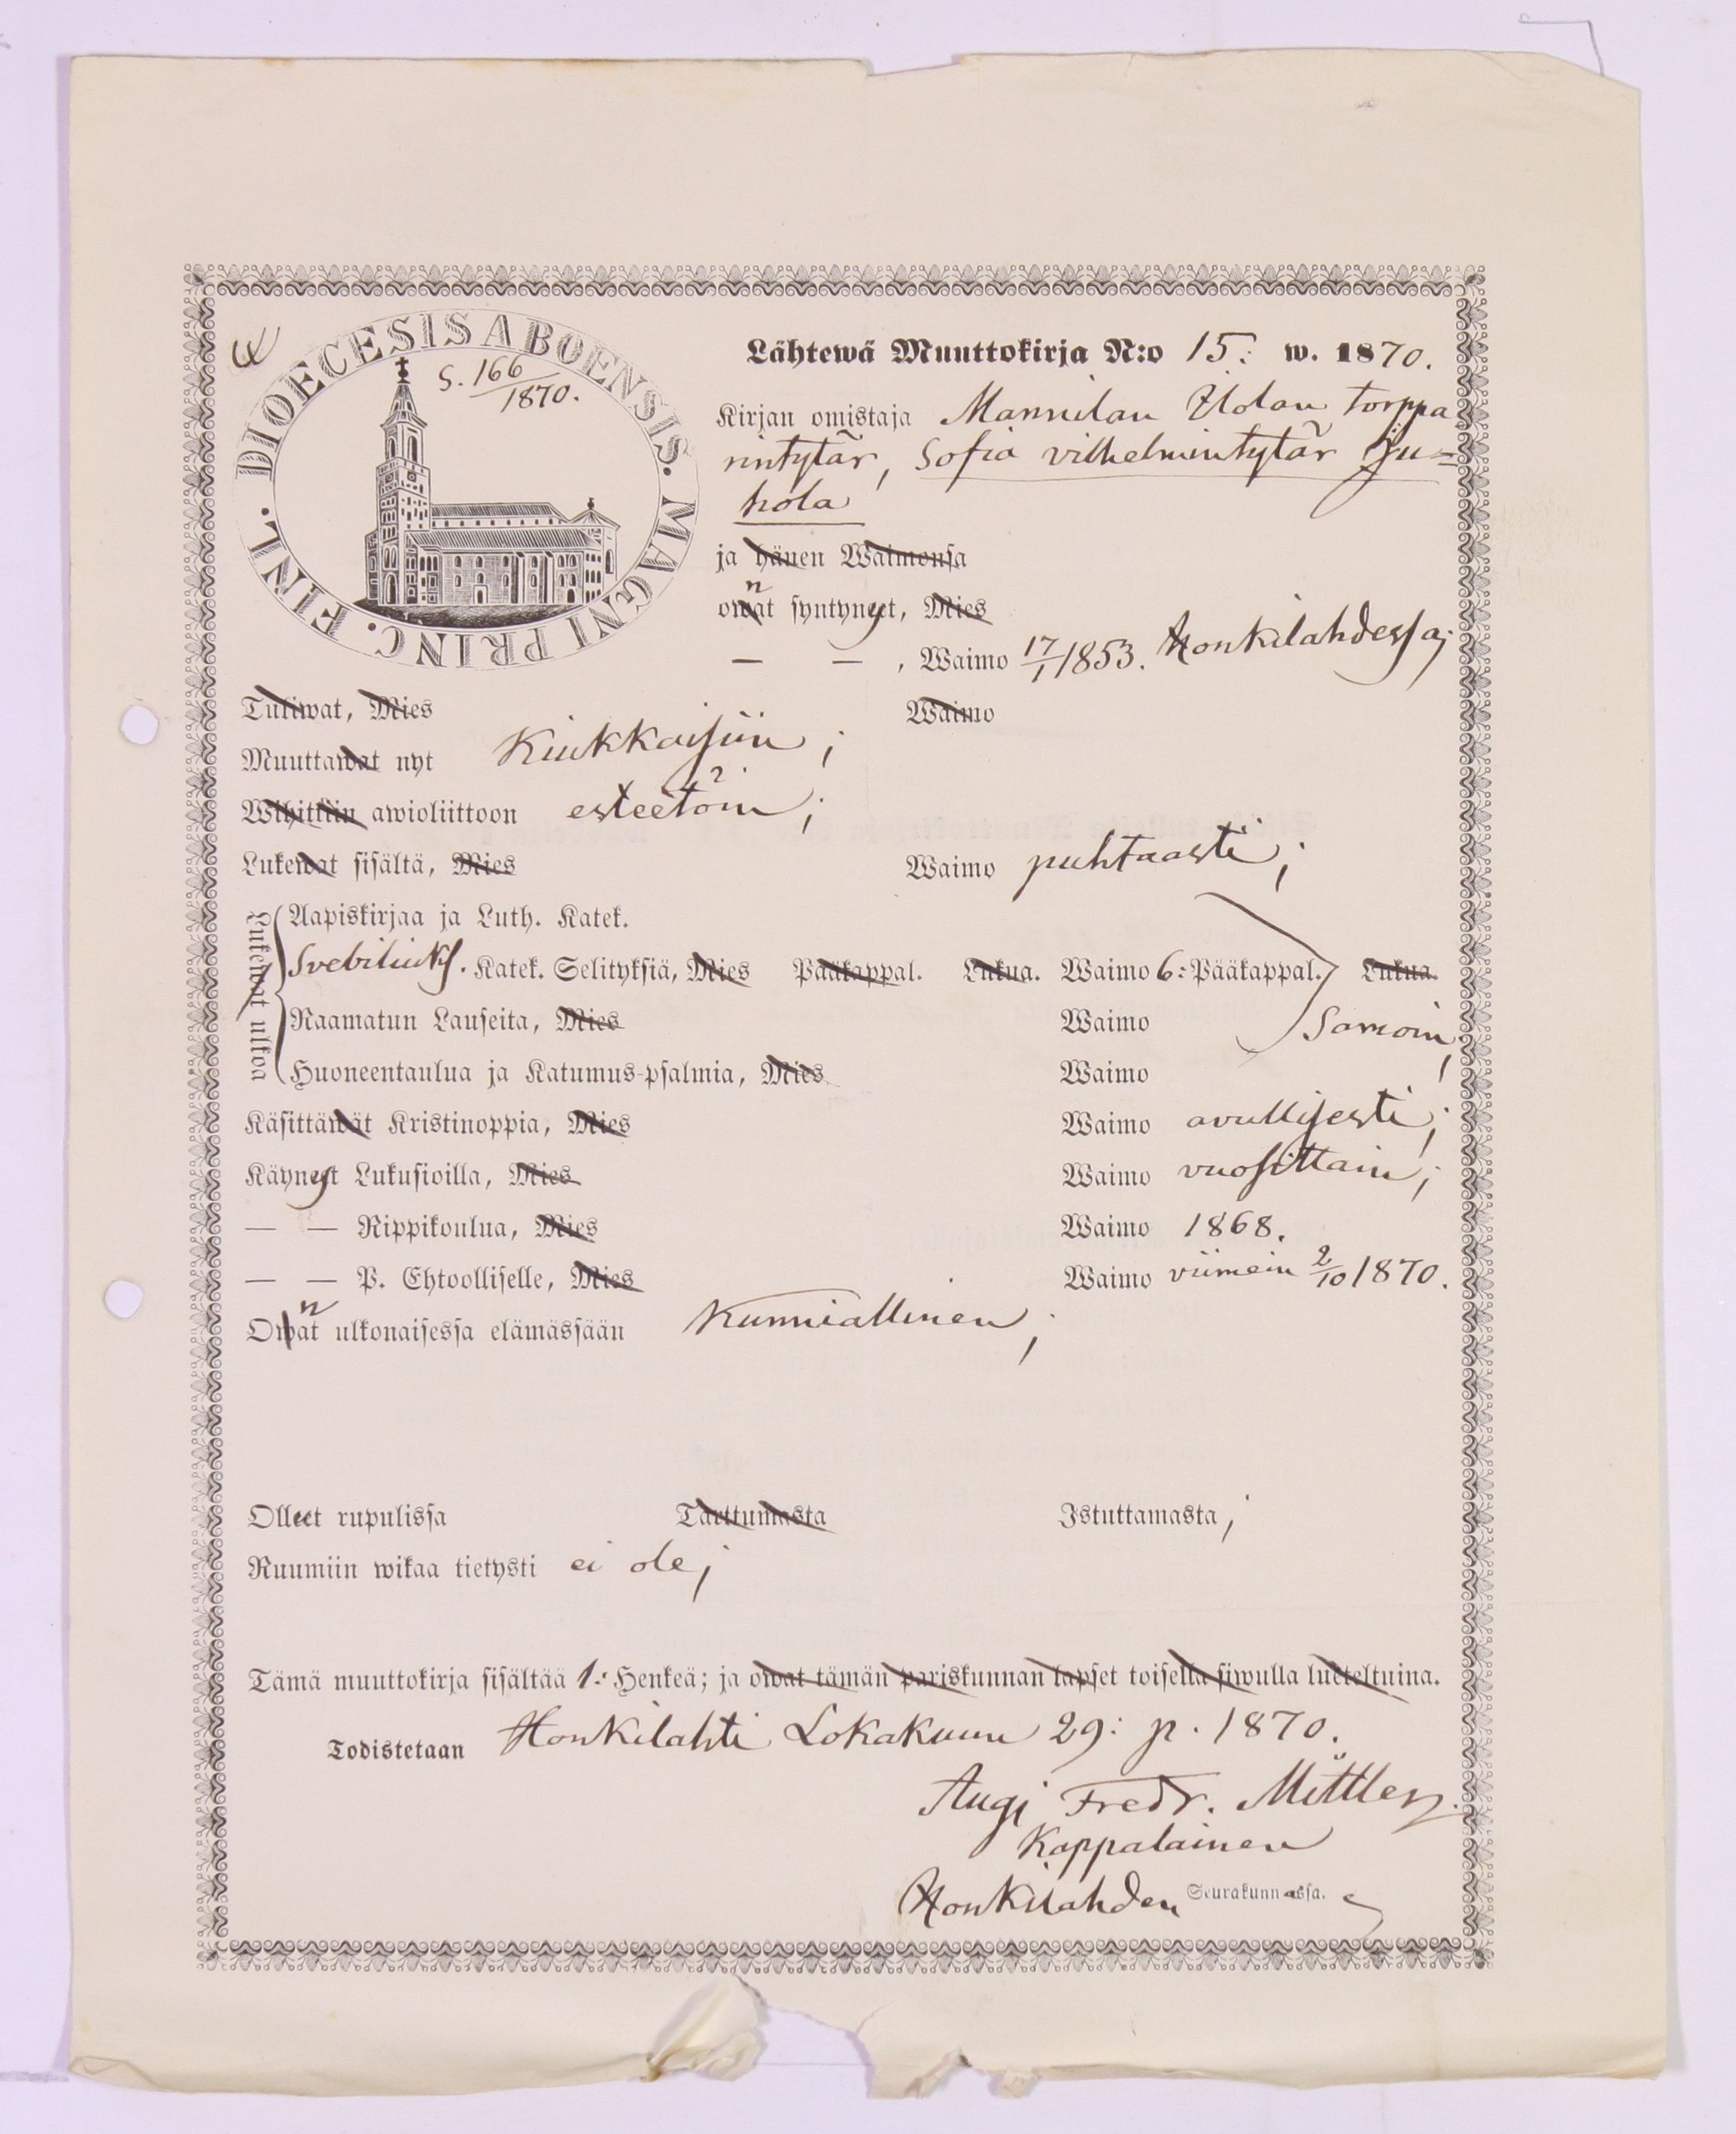 DIOECESIS ABOENSIS. MAGNI PRINC. FINL.
S. 166/1870.
Lähtewä Muuttokirja N:o 15: w. 1870.
Kirjan omistaja Mannilan Ylolan torppa
rintytär, Sofia vilhelmintytär Ju=
hola
ja hänen Waimonsa
n
owat syntynyet, Mies
— — , Waimo 17/1 1853. Honkilahdessa;
Tuliwat, Mies Waimo
Muuttawat nyt Kiukkaisiin;
Wihittiin awioliittoon esteetöin;
Lukewat sisältä, Mies Waimo puhtaasti;
Lukewat ulkoa
Aapiskirjaa ja Luth. Katek.
Svebiliuks. Katek. Selityksiä, Mies Pääkappal. Lukua. Waimo 6: Pääkappal. Lukua.
Raamatun Lauseita, Mies Waimo Samoin,
Huoneentaulua ja Katumus-psalmia, Mies Waimo
Käsittäwät Kristinoppia, Mies Waimo avullisesti;
Käynyet Lukusioilla, Mies Waimo vuosittain;
— — Rippikoulua, Mies Waimo 1868.
— — P. Ehtoolliselle, Mies Waimo viimein 2/10 1870.
n
Owat ulkonaisessa elämässään Kunniallinen;
Olleet rupulissa Tarttumasta Istuttamasta;
Ruumiin wikaa tietysti ei ole;
Tämä muuttokirja sisältää 1: Henkeä; ja owat tämän pariskunnan lapset toisella siwulla lueteltuina.
Todistetaan Honkilahti Lokakuun 29: p. 1870.
Fredr.
Kappalainen
Honkilahden Seurakunnassa.